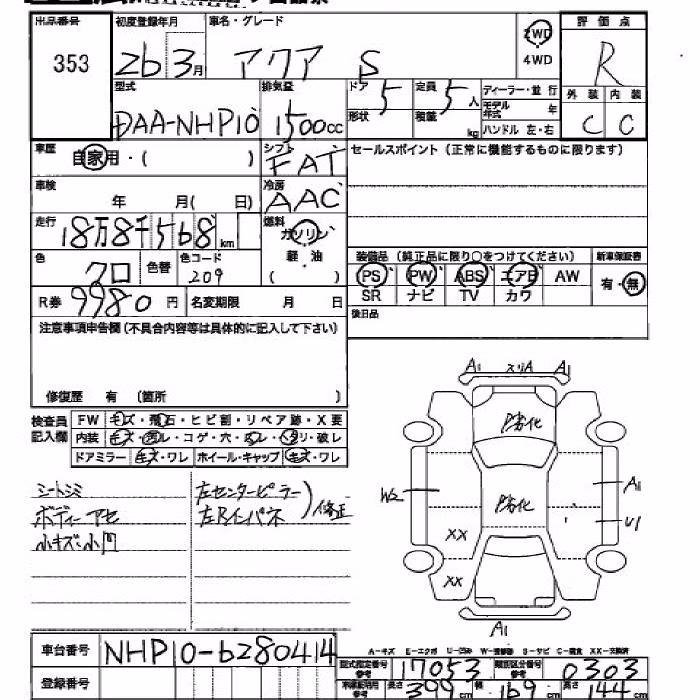 出品番号 初度登録年月 車名・グレード 2WD 評価点
353 26 3月 アクア S 4WD R
型式 排気量 ドア 5 定員 5人 ディーラー・並行 外装 内装
DAA-NHP10 1500cc 形状 積載 kg モデル年式 年 C C
ハンドル 左・右
車歴 自家用・( ) シフト FAT セールスポイント (正常に機能するものに限ります)
車検 年 月( 日) 冷房 AAC
走行 18万8千568km 燃料 ガソリン
軽・油
( )
色 クロ 色替 色コード 209
装備品 (純正品に限り○をつけてください) 新車保証書
PS PW ABS エアB AW 有・無
SR ナビ TV カワ
R券 9980円 名変期限 月 日
後日品
注意事項申告欄 (不具合内容等は具体的に記入して下さい)
修復歴 有 (箇所 )
検査員記入欄
FW キズ・飛石・ヒビ割・リペア跡・X要
内装 キズ・汚レ・コゲ・穴・スレ・ヘタリ・破レ
ドアミラー キズ・ワレ ホイール・キャップ キズ・ワレ
シートシミ
ボディーアセ
小キズ・小凹
左センターピラー
左Rインパネ
修正
A1 スリA A1
劣化
W2 劣化 A1
U1
XX
XX
A1
A-キズ E-エクボ U-凹み W-補修跡 S-サビ C-腐食 XX-交換済
車台番号 NHP10-6280414
登録番号
型式指定番号 参考 17053 類別区分番号 参考 0303
車庫証明用 参考 長さ 399cm 幅 169cm 高さ 144cm